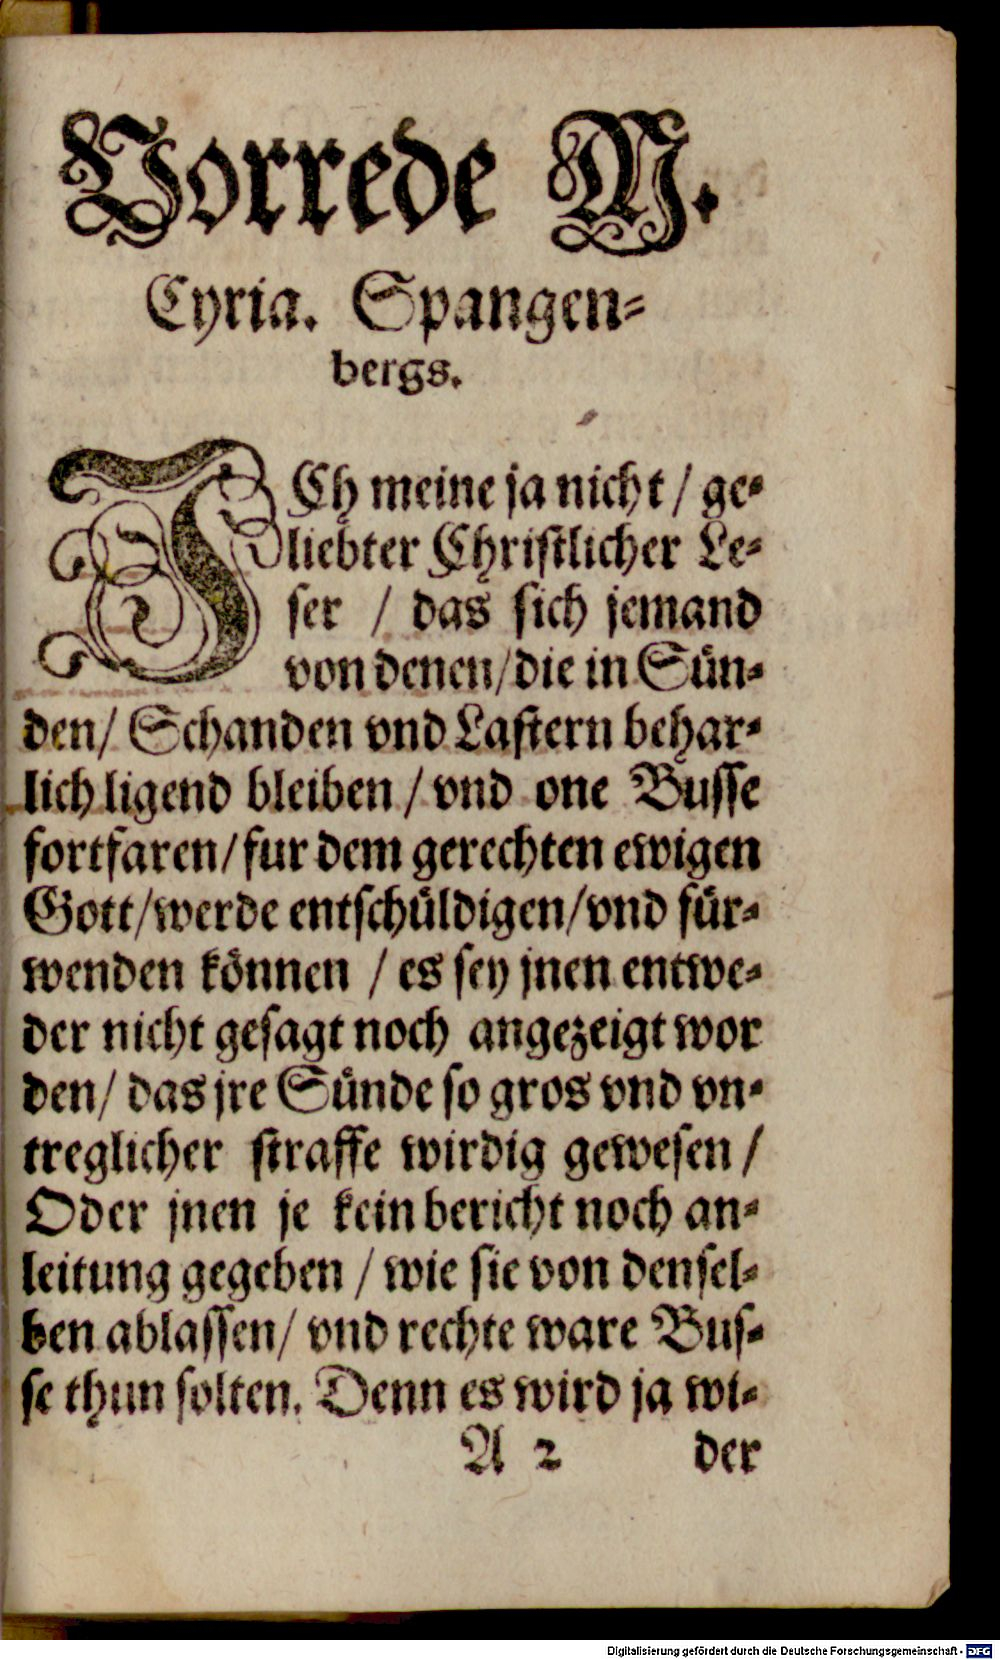 Vorrede M.
Cyria. Spangen=
bergs.
ICh meine ja nicht / ge=
liebter Christlicher Le=
ser / das sich jemand
von denen / die in Sün=
den / Schanden vnd Lastern behar=
lich ligend bleiben / vnd one Busse
fortfaren / fur dem gerechten ewigen
Gott / werde entschüldigen / vnd für=
wenden können / es sey jnen entwe=
der nicht gesagt noch angezeigt wor
den / das jre Sünde so gros vnd vn=
treglicher straffe wirdig gewesen /
Oder jnen je kein bericht noch an=
leitung gegeben / wie sie von densel=
ben ablassen / vnd rechte ware Bus=
se thun solten. Denn es wird ja wi=
A 2 der
Digitalisierung gefördert durch die Deutsche Forschungsgemeinschaft - DFG